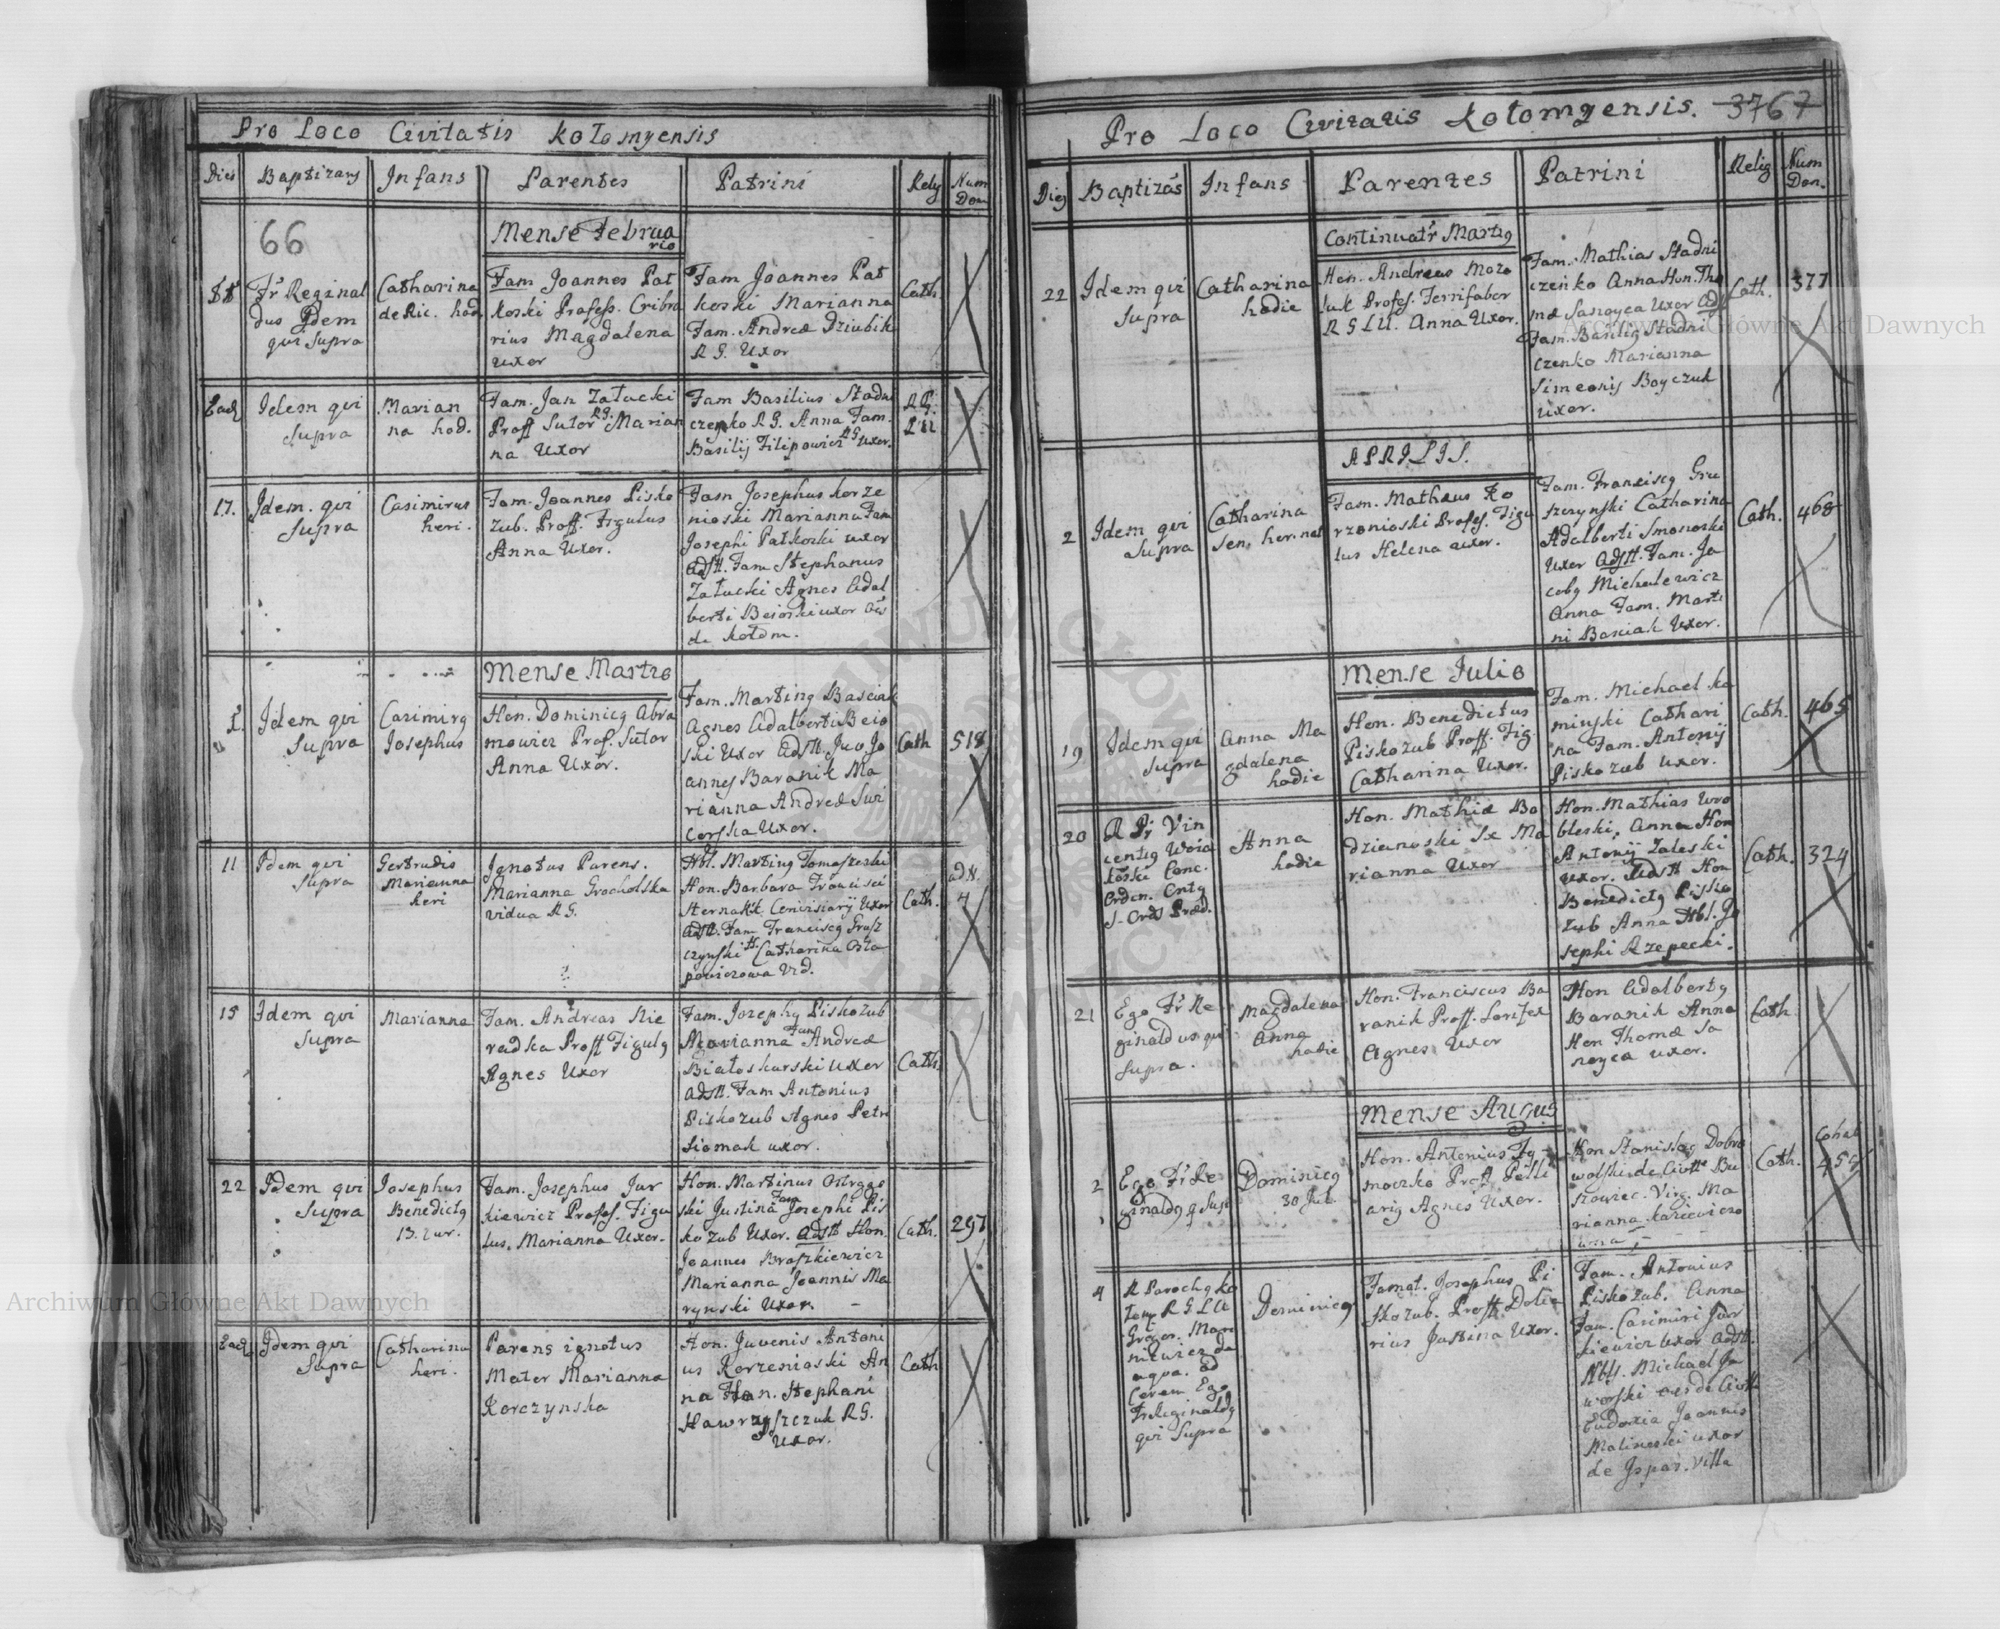 Pro Loco Civitatis Kołomyensis
Dies Baptizans Infans Parentes Patrini Relig Num Dom
66
Mense Februa
rio
Fr Reginal
dus Idem
qui Supra
Catharina
de Ric. hod.
Fam Joannes Pat
koski Profess. Cribra
rius Magdalena
Uxor
Fam Joannes Pat
koski Marianna
Fam. Andreæ Dziubik
R G. Uxor
Cath.
Ead.
Idem qui
Supra
Marian
na hod.
Fam. Jan Załucki
Proff Sutor R.G. Marian
na Uxor
Fam Basilius Stadni
czenko R G. Anna Fam.
Basilij Filipowicz RG Uxor.
R G.
L U
17.
Idem. qui
Supra
Casimirus
heri.
Fam. Joannes Pisko
zub. Proff. Figulus
Anna Uxor.
Fam Josephus Korze
nioski Marianna Fam
Josephi Patkoski uxor
Adstt. Fam Stephanus
Załucki Agnes Adal
berti Beioski uxor
de Kołom.
Mense Martio
1.
Idem qui
Supra
Casimirq
Josephus
Hon. Dominicq Abra
mowicz Prof. Sutor
Anna Uxor.
Fam. Martinq Basciak
Agnes Adalberti Beio
ski Uxor Adstt. Juv Jo
annes Baranik Ma
rianna Andreæ Swi
Uxor.
Cath
518
11
Idem qui
Supra
Gertrudis
Marianna
heri
Ignotus Parens.
Marianna Grocholska
vidua R G.
Nbl. Martinq Tomaszeski
Hon. Barbara Francisci
Uxor
Adstt. Fam Franciscq Grusz
czynski Catharina
Vid.
Cath.
15
Idem qui
Supra
Marianna
Fam. Andreas Nie
radka Proff Figulq
Agnes Uxor
Fam. Josephq Piskozub
Marianna Fam Andreæ
Białoskurski Uxor
Adstt. Fam Antonius
Piskozub Agnes Petri
Siomak uxor.
Cath.
22
Idem qui
Supra
Josephus
Benedictq
13. cur.
Fam. Josephus Jur
kiewicz Profes. Figu
lus. Marianna Uxor.
Hon. Martinus Ostrogs
ski Justina Fam Josephi Pis
kozub Uxor. Adstt Hon.
Joannes Broszkiewicz
Marianna Joannis Ma
rynski Uxor. –
Cath.
297
Ead.
Idem qui
Supra
Catharina
heri.
Parens ignotus
Mater Marianna
Korczynska
Hon. Juvenis Antoni
us Korzenioski An
na Hon. Stephani
Hawryszczuk R G.
Uxor.
Cath
Pro Loco Civitatis Kołomyensis. 3767
Dies Baptizãs Infans Parentes Patrini Relig Num Dom.
Continuatr Martiq
22
Idem qui
Supra
Catharina
hodie
Hon. Andreas Moro
luk Profes. Ferrifaber
R G L U. Anna Uxor.
Fam. Mathias Stadni
czenko Anna Hon. Tho
mæ Sanoyca Uxor Adstt
Fam. Basiliq Stadni
czenko Marianna
Simeonis Boyczuk
uxor.
Cath.
377
APRILIS.
2
Idem qui
Supra
Catharina
Sen. her. nat
Fam. Matheus Ko
rzenioski Profes. Figu
lus Helena uxor.
Fam. Franciscq Gru
szczynski Catharina
Adalberti Smonoski
Uxor Adstt. Fam. Ja
cobq Michalewicz
Anna Fam. Marti
ni Basciak Uxor.
Cath.
468
Mense Julio
19
Idem qui
Supra
Anna Ma
gdalena
hodie
Hon. Benedictus
Piskozub Proff. Fig.
Catharina Uxor.
Fam. Michael Ka
minski Cathari
na Fam. Antonij
Piskozub uxor.
Cath.
465
20
R Pr Vin
centiq Woia
koski Conc.
Ordin.
S. Ords Præd.
Anna
hodie
Hon. Mathiæ Bo
dzienoski Sx Ma
rianna Uxor
Hon. Mathias Wro
bleski, Anna Hon
Antonij Zaleski
uxor. Adstt Hon
Benedictq Pisko
zub Anna Nbl. Jo
sephi Rzepecki.
Cath.
324
21
Ego Fr Re
ginaldus qui
Supra.
Magdalena
Anna
hodie
Hon. Franciscus Ba
ranik Proff.
Agnes Uxor
Hon Adalbertq
Baranik Anna
Hon Thomæ Sa
noyca uxor.
Cath
Mense Augus
2
Ego Fr Re
ginaldq q Supr
Dominicq
30 Jul.
Hon. Antonius Ty
moczko Proff Pelli
ariq Agnes Uxor.
Hon Stanislaq Dobro
wolski de Civitte Bu
szowiec. Virg. Ma
rianna Kariewiczo
wna –
Cath.
457
4
R Parochq Ko
łom. R G L U
Gregor. Man
niewicz de
aqua. ad
Cerem Ego
Fr Reginaldq
qui Supra
Dominicq
Famat. Josephus Pi
skozub. Proff. Dolia
rius Justina Uxor.
Fam. Antonius
Piskozub. Anna
Fam. Casimiri Jur
kiewicz uxor Adstt.
Nbls. Michael Ja
worski de Civitt
Eudoxia Joannis
Malinoski uxor
de Ispas. Villa
Archiwum Główne Akt Dawnych
Archiwum Główne Akt Dawnych